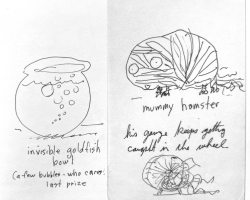 invisible goldfish
bowl
(a few bubbles - who cares.
last prize
mummy homster
his gauze keeps getting
caught in the wheel